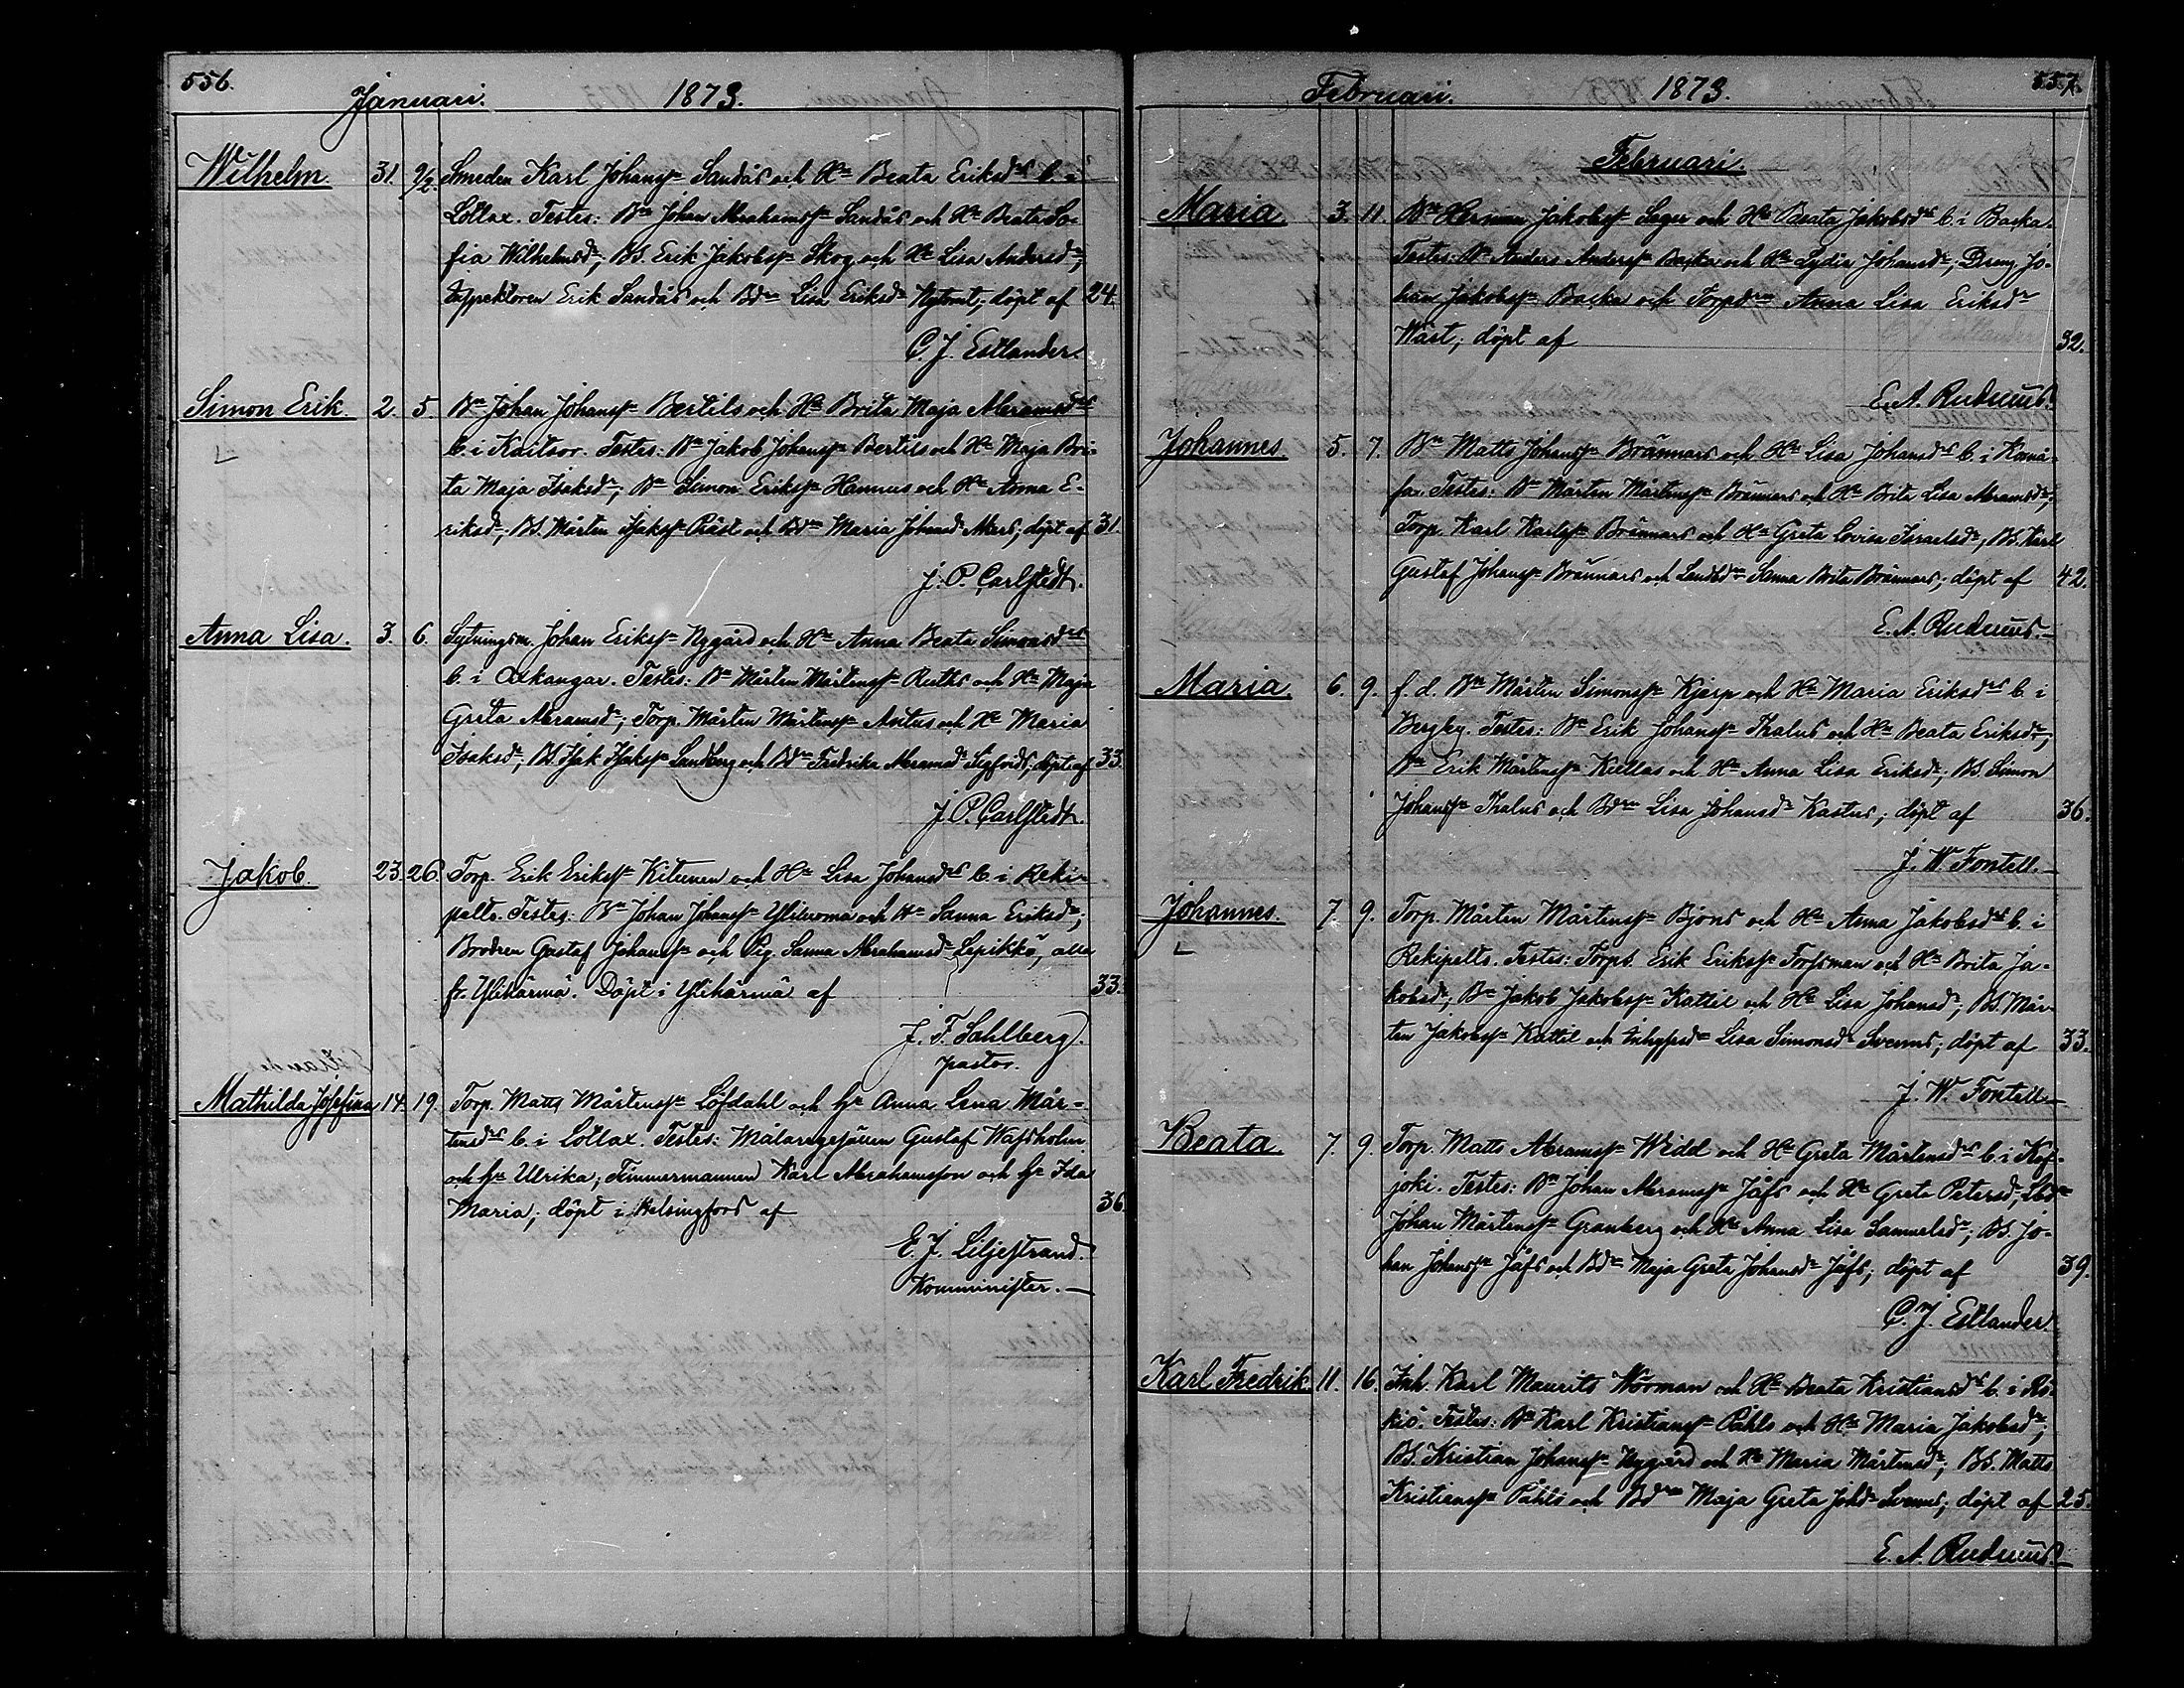 556.
Januari. 1873.
Wilhelm. 31. 9/2. Smeden Karl Johanss:n Sandås och H:u Beata Eriksd:rs b. i
Lötlax. Testes: B:n Johan Abrahamss:n Sandås och H:u Beata So-
fia Wilhelmsd:r; BS. Erik Jakobss:n Skog och H:u Lisa Andersd:r;
Inspektoren Erik Sandås och Bd:rn Lisa Eriksd:r döpt af 24.
C. J. Estlander.
Simon Erik. 2. 5. B:n Johan Johanss:n Bertils och H:u Brita Maja Abramsd:rs
b. i Kaitsor. Testes: B:n Jakob Johanss:n Bertils och H:u Maja Bri-
ta Maja Isaksd:r; B:n Simon Erikss:n Hannus och H:u Anna E-
riksd:r; BS. Mårten Isakss:n och Bd:rn Maria Johansd:r döpt af 31.
J. P. Carlstedt.
Anna Lisa. 3. 6. Sytningsm. Johan Erikss:n Nygård och H:u Anna Beata Simonsd:rs
b. i Oxkangar. Testes: B:n Mårten Mårtenss:n Ruths och H:u Maja
Greta Abramsd:r; Torp. Mårten Mårtenss:n Antus och H:u Maria
Isaksd:r; BS. Isak Isakss:n Sandberg och Bd:rn Fredrika Abramsd:r Sigfrids; döpt af 33.
J. P. Carlstedt.
Jakob. 23. 26. Torp. Erik Erikss:n Kitunen och H:u Lisa Johansd:rs b. i Reki-
pelto. Testes: B:n Johan Johanss:n Ylituoma och H:u Sanna Eriksd:r;
Brodren Gustaf Johanss:n och Pig. Sanna Abrahamsd:r Lepikkö, alla
fr. Ylihärmä. Döpt i Ylihärmä af 33.
J. F. Sahlberg.
pastor.
Mathilda Josefina 14. 19. Torp. Matts Mårtenss:n Löfdahl och h:u Anna Lena Mår-
tensd:rs b. i Lötlax. Testes: Målaregesällen Gustaf Wassholm
och h:u Ulrika; Timmermannen Karl Abrahamsson och h:u Ida
Maria; döpt i Helsingfors af 36.
E. J. Liljestrand.
Komminister.
Februari. 1873. 557.
Februari.
Maria 3. 11. B:n Herman Jakobss:n Sager och H:u Beata Jakobsd:rs b. i Backa.
Testes: B:n Anders Anderss:n Backa och H:u Lydia Johansd:r; Dreng Jo-
han Jakobss:n Backa och Torpd:rn Anna Lisa Eriksd:r
Wäst; döpt af 32.
E. A. Rudnäus.
Johannes 5. 7. B:n Matts Johanss:n Brännars och H:u Lisa Johansd:rs b. i Komå-
Testes: B:n Mårten Mårtenss:n Brännars och H:u Brita Lisa Abramsd:r;
Torp. Karl Karlss:n Brännars och H:u Greta Lovisa Israelsd:r, BS. Karl
Gustaf Johanss:n Brännars och Landbd:rn Sanna Brita Brännars; döpt af 42.
E. A. Rudnäus.
Maria. 6. 9. f. d. B:n Mårten Simonss:n Kjerp och H:u Maria Eriksd:rs b. i
Bergby. Testes: B:n Erik Johanss:n Thalus och H:u Beata Eriksd:r;
B:n Erik Mårtenss:n Kullas och H:u Anna Lisa Eriksd:r; BS. Simon
Johanss:n Thalus och Bd:rn Lisa Johansd:r Kastus; döpt af 36.
J. W. Fontell.
Johannes. 7. 9. Torp. Mårten Mårtenss:n Björs och H:u Anna Jakobsd:rs b. i
Rekipelto. Testes: Torps. Erik Erikss:n Forssman och H:u Brita Ja-
kobsd:r; B:n Jakob Jakobss:n Kattil och H:u Lisa Johansd:r; BS. Mår-
ten Jakobss:n Kattil och Lisa Simonsd:r Svenns; döpt af 33.
J. W. Fontell.
Beata. 7. 9. Torp. Matts Abramss:n Widd och H:u Greta Mårtensd:rs b. i Kos-
joki. Testes: B:n Johan Abramss:n Jåfs och H:u Greta Petersd:r;
Johan Mårtenss:n Granberg och H:u Anna Lisa Samuelsd:r; BS. Jo-
han Johanss:n Jåfs och Bd:rn Maja Greta Johansd:r Jåfs; döpt af 39.
C. J. Estlander.
Karl Fredrik. 11. 16. Inh. Karl Maurits Norrman och H:u Beata Kristiansd:rs b. i Rö-
kiö. Testes: B:n Karl Kristianss:n Påhls och H:u Maria Jakobsd:r;
BS. Kristian Johanss:n Nygård och H:u Maria Mårtensd:r; BS. Matts
Kristianss:n Påhls och Bd:rn Maja Greta Johd:r Svenns; döpt af 25.
E. A. Rudnäus.